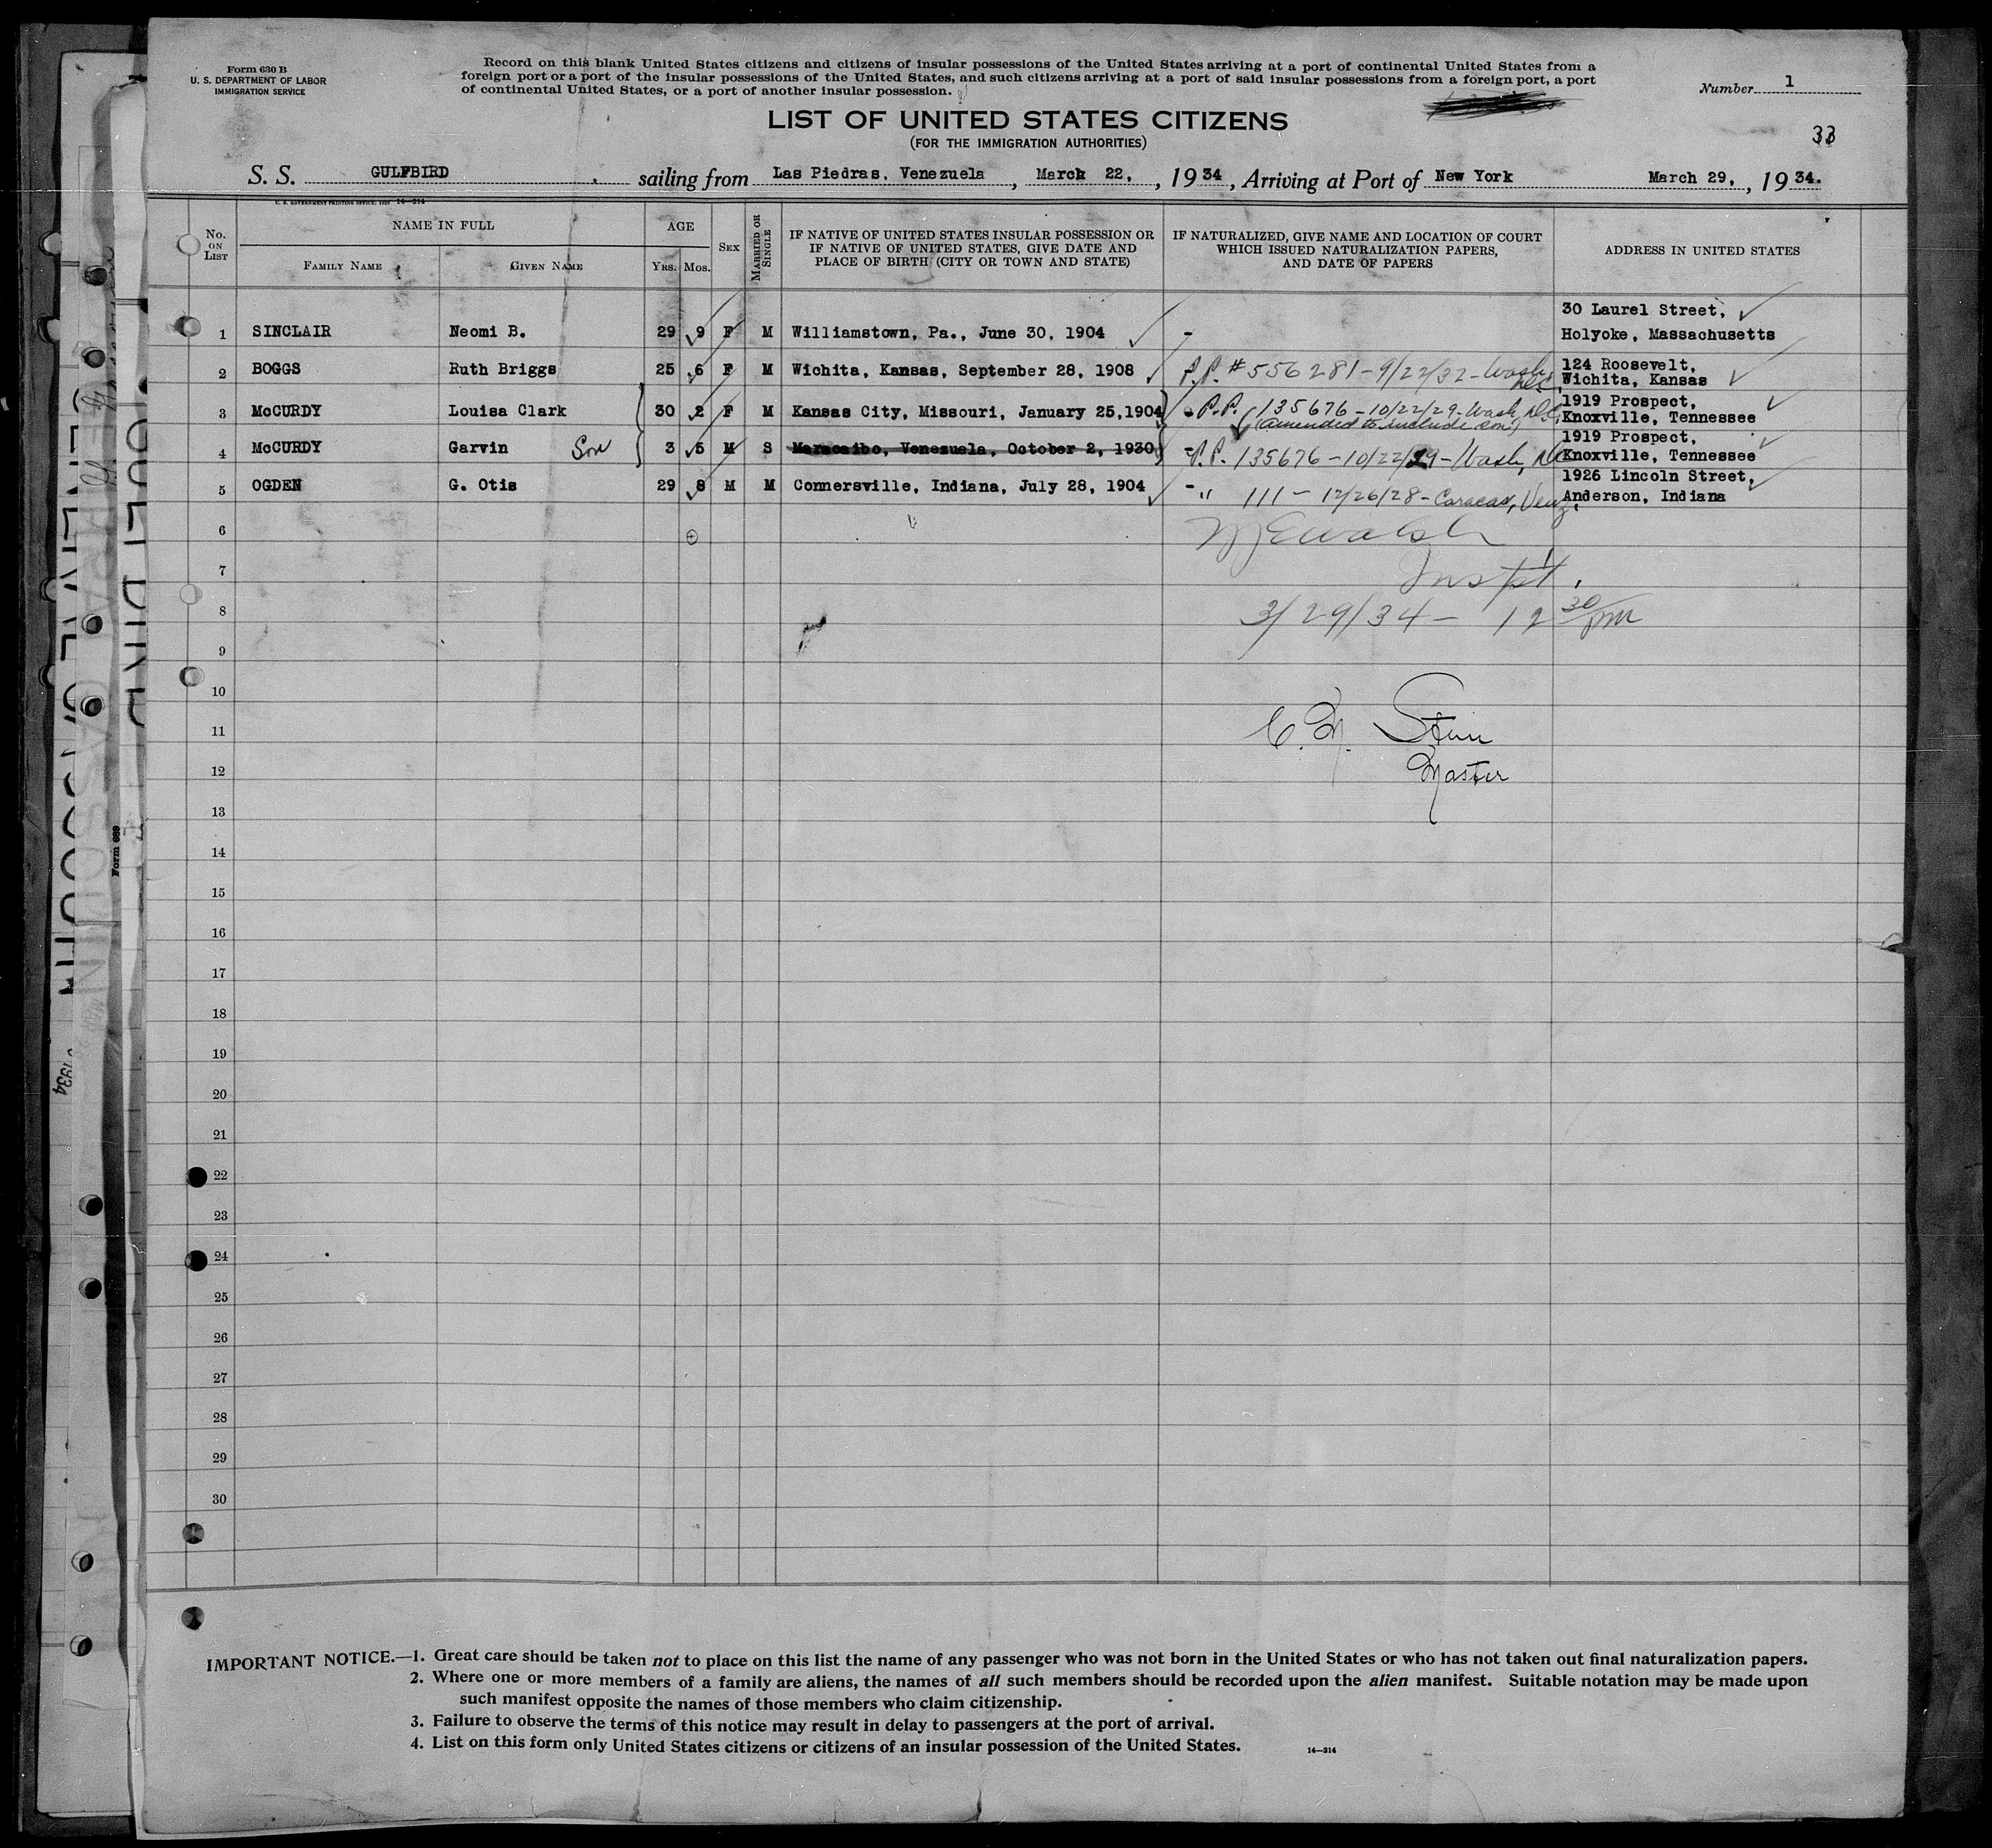 Form 630 B
U. S. DEPARTMENT OF LABOR
IMMIGRATION SERVICE
Record on this blank United States citizens and citizens of insular possessions of the United States arriving at a port of continental United States from a
foreign port or a port of the insular possessions of the United States, and such citizens arriving at a port of said insular possessions from a foreign port, a port
of continental United States, or a port of another insular possession.
Number 1
33
LIST OF UNITED STATES CITIZENS
(FOR THE IMMIGRATION AUTHORITIES)
S. S. GULFBIRD, sailing from Las Piedras, Venezuela, March 22, , 1934, Arriving at Port of New York March 29, , 1934.
U. S. GOVERNMENT PRINTING OFFICE: 14—214
No. ON LIST
NAME IN FULL
FAMILY NAME
GIVEN NAME
AGE
YRS. MOS.
SEX
MARRIED OR SINGLE
IF NATIVE OF UNITED STATES INSULAR POSSESSION OR
IF NATIVE OF UNITED STATES, GIVE DATE AND
PLACE OF BIRTH (CITY OR TOWN AND STATE)
IF NATURALIZED, GIVE NAME AND LOCATION OF COURT
WHICH ISSUED NATURALIZATION PAPERS,
AND DATE OF PAPERS
ADDRESS IN UNITED STATES
1 SINCLAIR Neomi B. 29 9 F M Williamstown, Pa., June 30, 1904 - 30 Laurel Street,
Holyoke, Massachusetts
2 BOGGS Ruth Briggs 25 6 F M Wichita, Kansas, September 28, 1908 P.P. #556281-9/22/32-Wash, D.C. 124 Roosevelt,
Wichita, Kansas
3 McCURDY Louisa Clark 30 2 F M Kansas City, Missouri, January 25,1904 - P.P. 135676-10/22/29-Wash, D.C. 1919 Prospect,
(amended to include son) Knoxville, Tennessee
4 McCURDY Garvin Son 3 5 M S Maracaibo, Venezuela, October 2, 1930 - P.P. 135676-10/22/29-Wash, D.C. 1919 Prospect,
Knoxville, Tennessee
5 OGDEN G. Otis 29 8 M M Connersville, Indiana, July 28, 1904 - " 111-12/26/28-Caracas, Venz. 1926 Lincoln Street,
Anderson, Indiana
6
7
Inspt.
8 3/29/34- 12 30 pm
9
10
11 C. N. Stein
12 Master
13
14
15
16
17
18
19
20
21
22
23
24
25
26
27
28
29
30
Form 689
1934
IMPORTANT NOTICE.—1. Great care should be taken not to place on this list the name of any passenger who was not born in the United States or who has not taken out final naturalization papers.
2. Where one or more members of a family are aliens, the names of all such members should be recorded upon the alien manifest. Suitable notation may be made upon
such manifest opposite the names of those members who claim citizenship.
3. Failure to observe the terms of this notice may result in delay to passengers at the port of arrival.
4. List on this form only United States citizens or citizens of an insular possession of the United States.
14—214